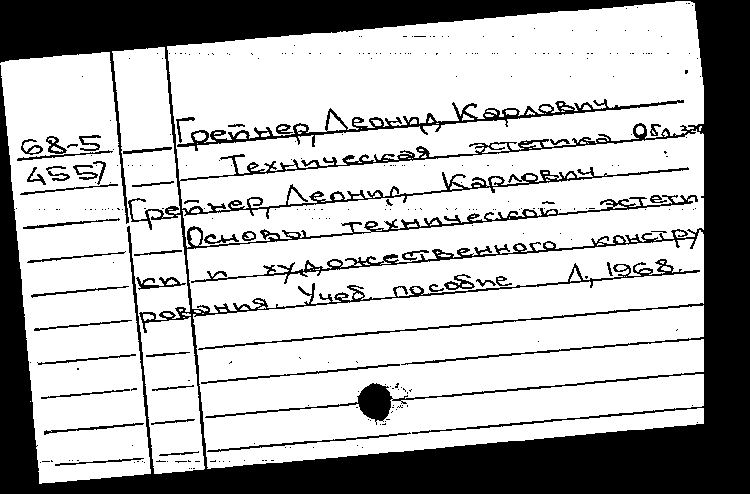 68-5
4557
Грейнер, Леонид Карлович.
Техническая эстетика. Обл. заг
Грейнер, Леонид Карлович.
Основы технической эстети-
ки и художественного констру
рования. Учеб. пособие. Л., 1968.